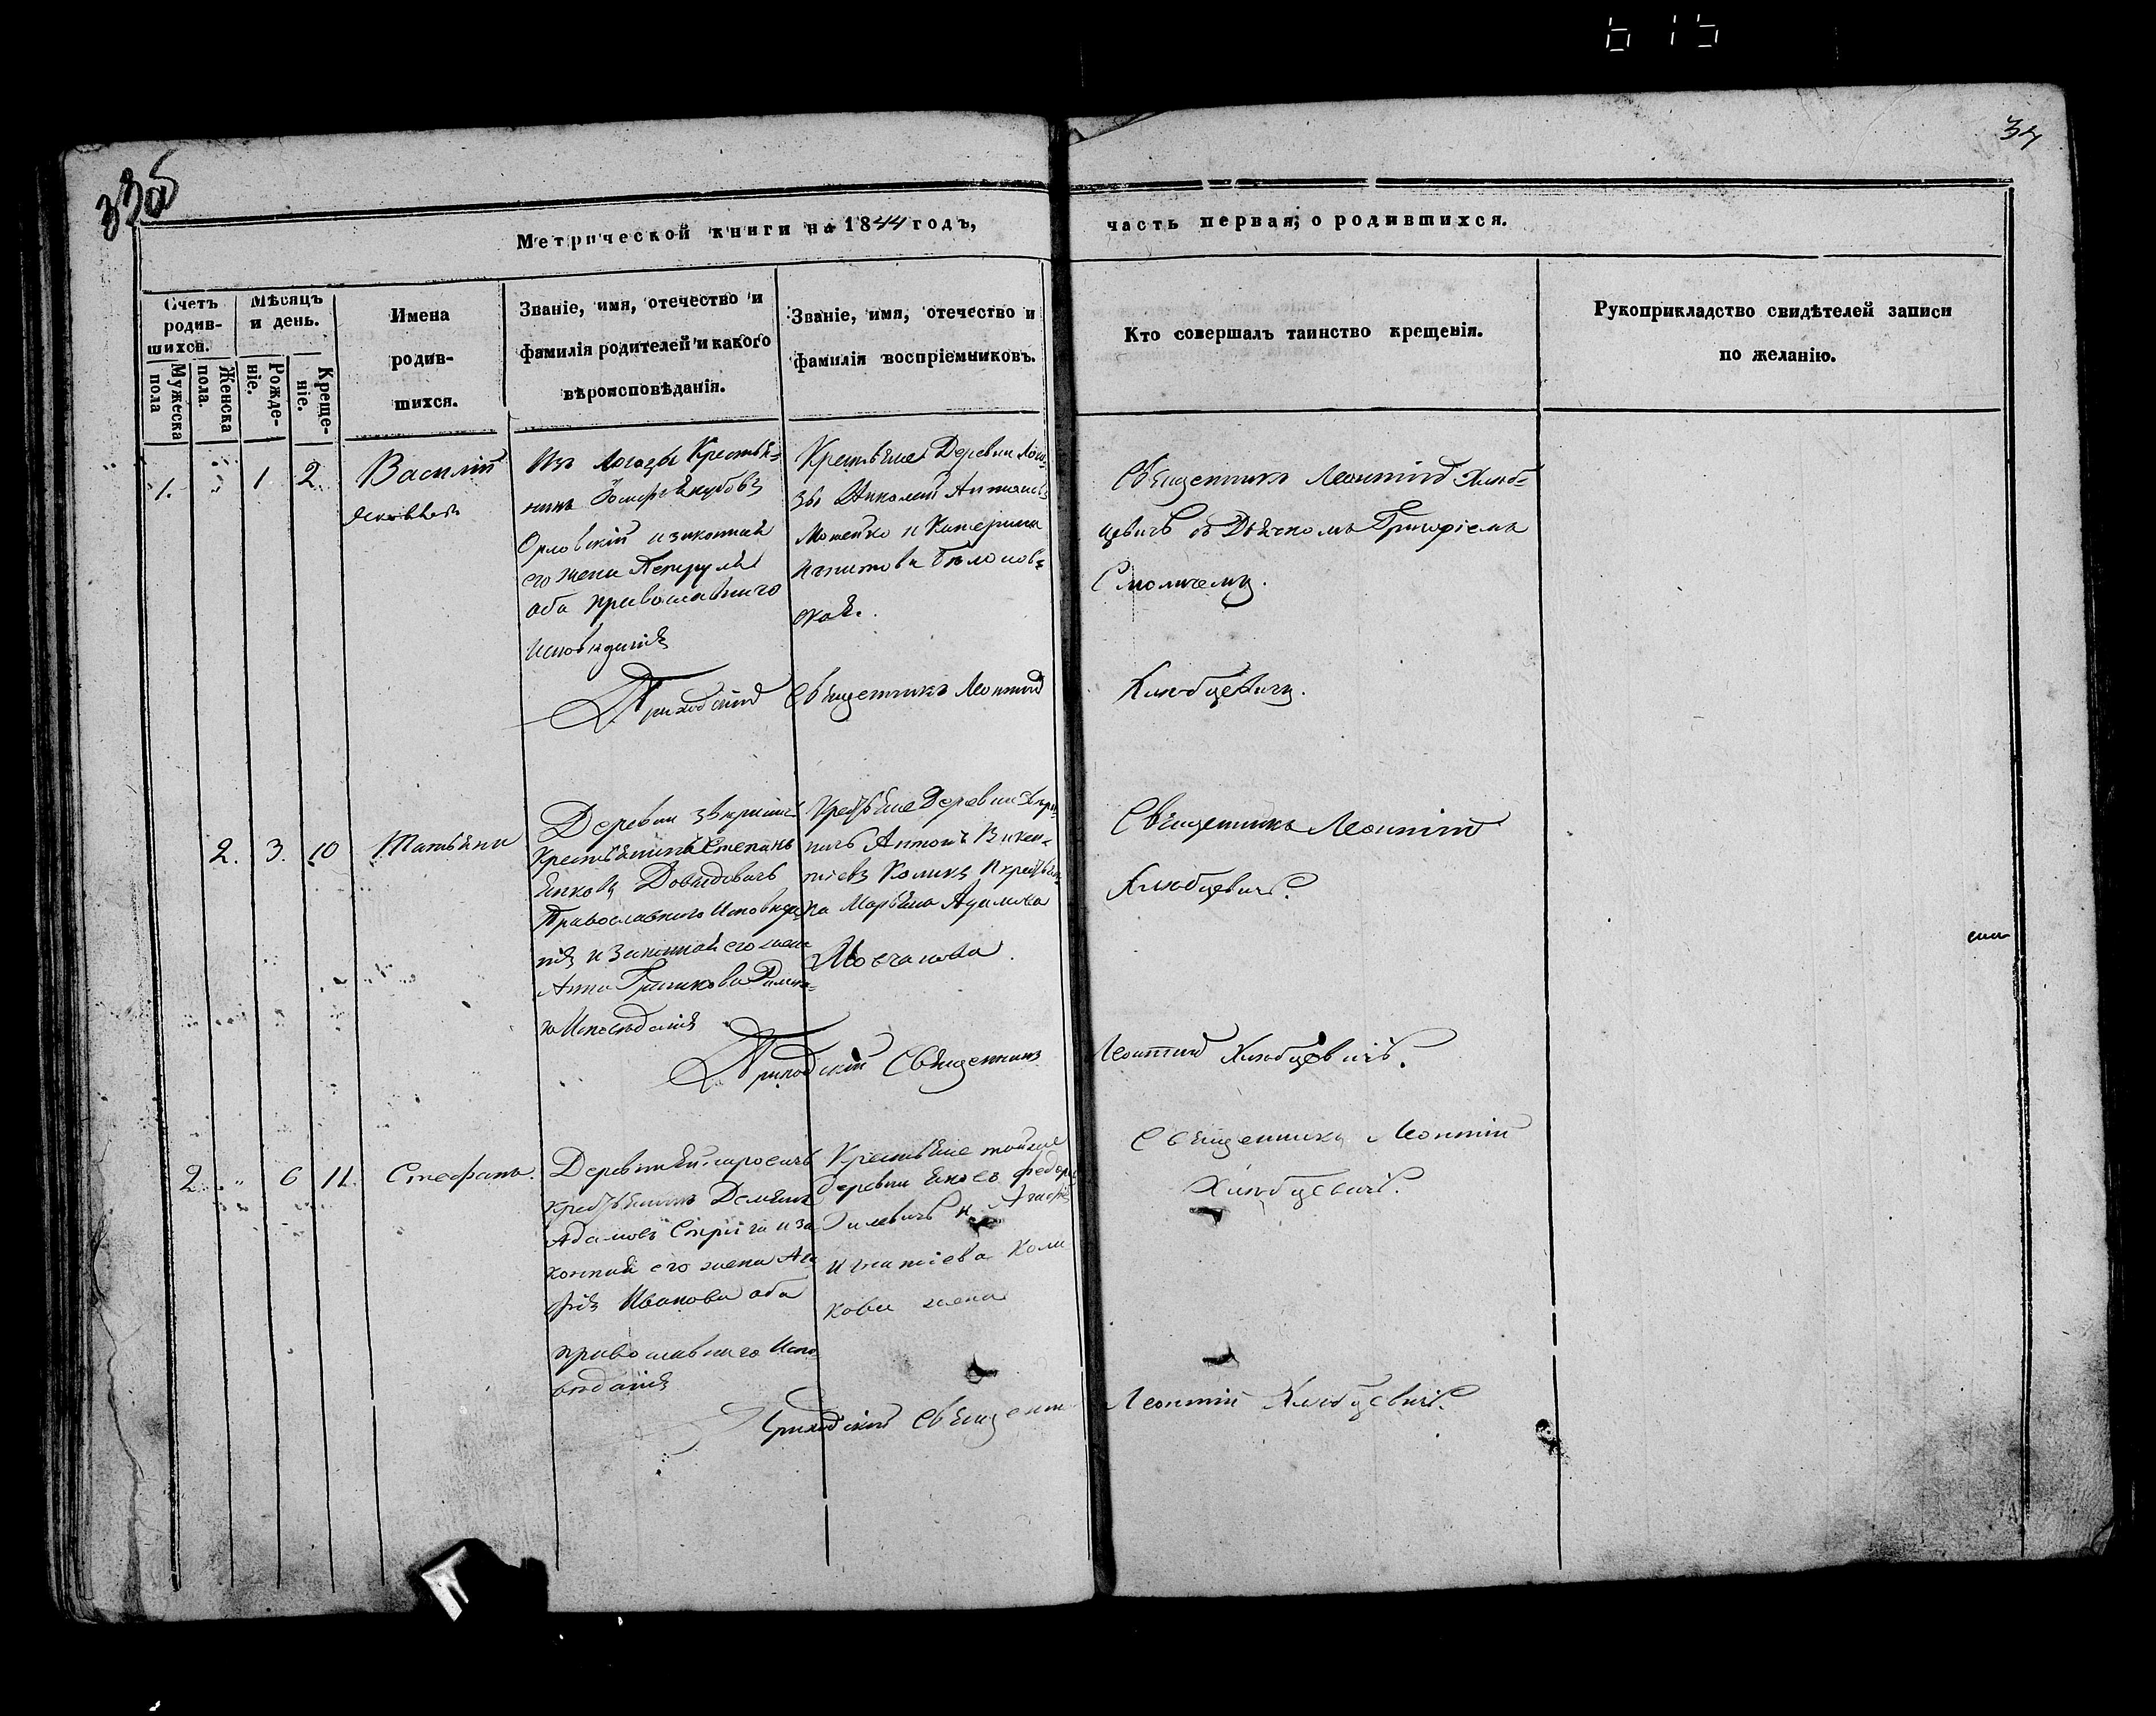 615
33об
34
Метрической книги на 1844 годъ,
часть первая, о родившихся.
Счетъ родив-шихся.
Мѣсяцъ и день.
Мужеска пола
Женска пола.
Рожде-ніе.
Креще-ніе.
Имена
родив-
шихся.
Званіе, имя, отечество и
фамилія родителей и какого
вѣроисповѣданія.
Званіе, имя, отечество и
фамилія воспріемниковъ.
Кто совершалъ таинство крещенія.
Рукоприкладство свидѣтелей записи
по желанію.
1. " 1 2 Василій
Изъ Крестья=
нинъ Іосифъ Якубовъ
Орловскій и законная
его жена Петрулея
оба православнаго
исповѣданія
Крестьяне Деревни
Николай Антоновъ
Мотейко и Катерина
Игнатова Билонов=
ская.
Священникъ Леонтій Хлюб=
цевичъ съ Дьячкомъ Григоріемъ
Смоличемъ.
Приходскій Священникъ Леонтій
Хлюбцевичъ.
2. 3. 10 Татьяна
Деревни
Крестьянинъ Степанъ
Янковъ Довидовичъ
Православнаго Исповѣда
нія и Законная его жена
Анна Гришкова Римска=
го Исповѣданія
Крестьяне Деревни
Антонъ Викен=
тіевъ Коликъ и крестьян
ка Марьяна Адамова
Мовчанова.
Священникъ Леонтій
Хлюбцевичъ.
Приходскій Священникъ
Леонтій Хлюбцевичъ.
2. " 6 11. Стефанъ.
Деревни
крестьянинъ Демьянъ
Адамовъ и за
конная его жена Ага
фія Иванова оба
православнаго Испо=
вѣданія
Крестьяне тойже
деревни Яковъ Федоровъ
и Агафія
Игнатіева Коли
кова жена
Священникъ Леонтій
Хлюбцевичъ.
Приходскій Священ
Леонтій Хлюбцевичъ.